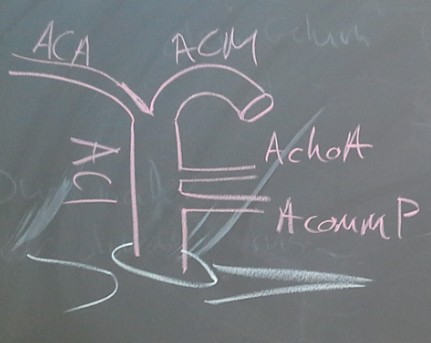 ACA
ACM
ACI
AchoA
AcommP